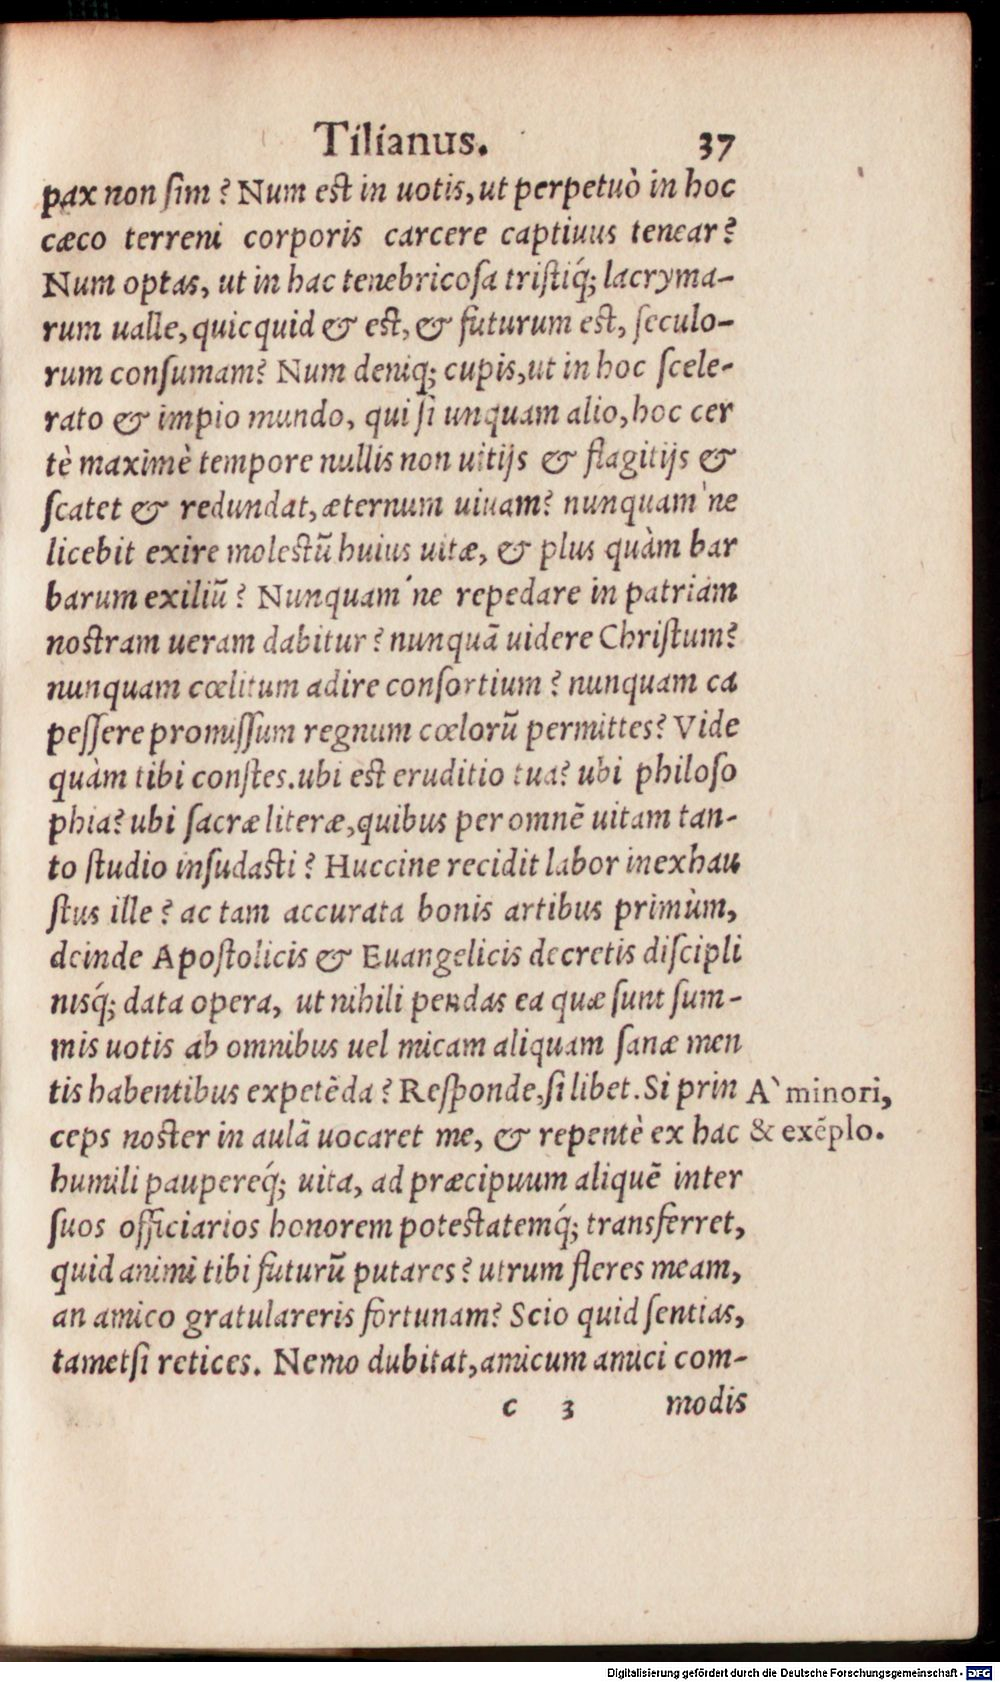 Tilianus. 37
pax non ſim? Num est in uotis, ut perpetuò in hoc
cæco terreni corporis carcere captiuus tenear?
Num optas, ut in hac tenebricoſa triſtiq́; lacryma-
rum ualle, quicquid & est, & futurum est, ſeculo-
rum conſumam? Num deniq; cupis, ut in hoc ſcele-
rato & impio mundo, qui ſi unquam alio, hoc cer
tè maximè tempore nullis non uitijs & flagitijs &
ſcatet & redundat, æternum uiuam? nunquam'ne
licebit exire molestũ huius uitæ, & plus quàm bar
barum exiliũ? Nunquam'ne repedare in patriam
nostram ueram dabitur? nunquã uidere Chriſtum?
nunquam cœlitum adire conſortium? nunquam ca
peſſere promiſſum regnum cœlorũ permittes? Vide
quàm tibi conſtes. ubi est eruditio tua? ubi philoſo
phia? ubi ſacræ literæ, quibus per omnẽ uitam tan-
to ſtudio inſudasti? Huccine recidit labor inexhau
ſtus ille? ac tam accurata bonis artibus primùm,
deinde Apoſtolicis & Euangelicis decretis diſcipli
nisq́; data opera, ut nihili pendas ea quæ ſunt ſum-
mis uotis ab omnibus uel micam aliquam ſanæ men
tis habentibus expetẽda? Reſponde, ſi libet. Si prin
ceps noster in aulã uocaret me, & repentè ex hac
humili paupereq́; uita, ad præcipuum aliquẽ inter
ſuos officiarios honorem potestatemq́; transferret,
quid animi tibi futurũ putares? utrum fleres meam,
an amico gratulareris fortunam? Scio quid ſentias,
tametſi retices. Nemo dubitat, amicum amici com-
c 3 modis
A` minori,
& exẽplo.
Digitalisierung gefördert durch die Deutsche Forschungsgemeinschaft - DFG